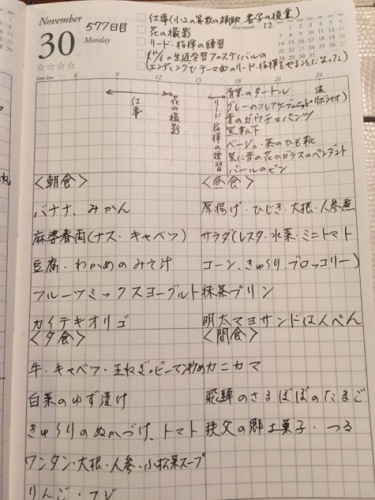 November
30
Monday
577日目
仕事(小2の算数の補助、書写の授業)
花の撮影
リード・指揮の練習
エンディングでテーマ曲のリード・指揮をやることになって)
6
9
12
15
18
21
24
仕事
花の撮影
リード・指揮の練習
青のガウチョパンツ
黒靴下
ベージュ・茶のひも靴
黒に青の花のガラスのペンダント
パールのピン
<朝食>
バナナ、みかん
麻婆春雨(ナス・キャベツ)
豆腐・わかめのみそ汁
フルーツミックスヨーグルト
カイテキオリゴ
<昼食>
厚揚げ・ひじき・大根・人参煮
サラダ(レタス・水菜・ミニトマト
コーン、きゅうり、ブロッコリー)
抹茶プリン
明太マヨサンドはんぺん
<夕食>
牛・キャベツ・玉ねぎ・ピーマン炒め
白菜のゆず漬け
きゅうりのぬかづけ、トマト
ワンタン・大根・人参・小松菜スープ
りんご・フジ
カニカマ
<間食>
飛騨のさるぼぼのたまご
秩父の郷土菓子・つる